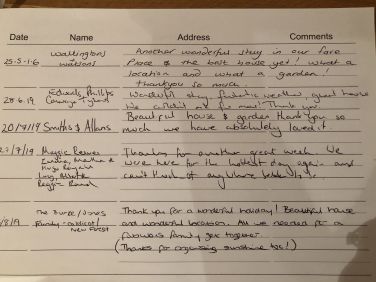 Date Name Address Comments
Another wonderful stay in our fave
Place & the best house yet! What a
location and what a garden!
Thankyou so much.
25-5-1-6 Wallingtons + Watsons
28.6.19 Edwards, Phillips Wonderful stay, fantastic weather, great house
We couldn't ask for more! Thank you
Beautiful house & garden thank you so
20/7/19 Smiths & Allans much we have absolutely loved it.
27/7/19 Maggie Thanks for another great week. We
were here for the hottest day again and
can't think of anywhere better to be
Thank you for a wonderful holiday! Beautiful house
/8/19 Family - and wonderful location. All we needed for a
New Forest fabulous family get together
(Thanks for organising sunshine too!)